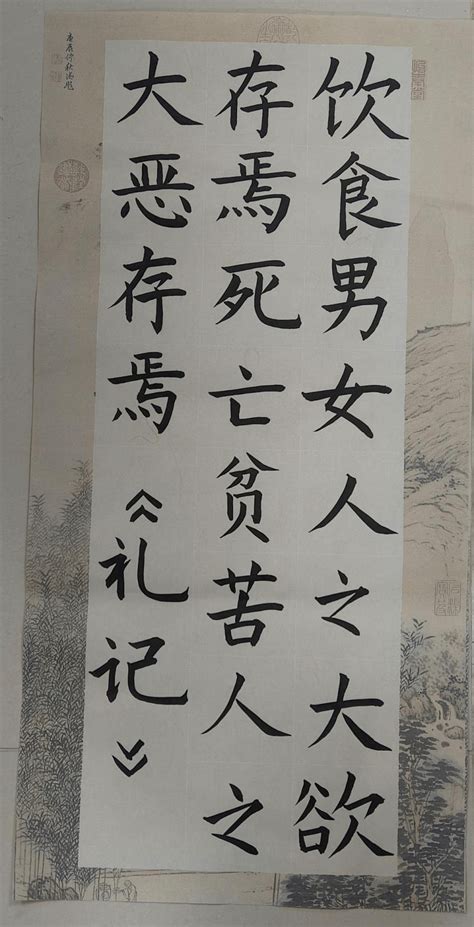 饮食男女人之大欲
存焉死亡贫苦人之
大恶存焉《礼记》